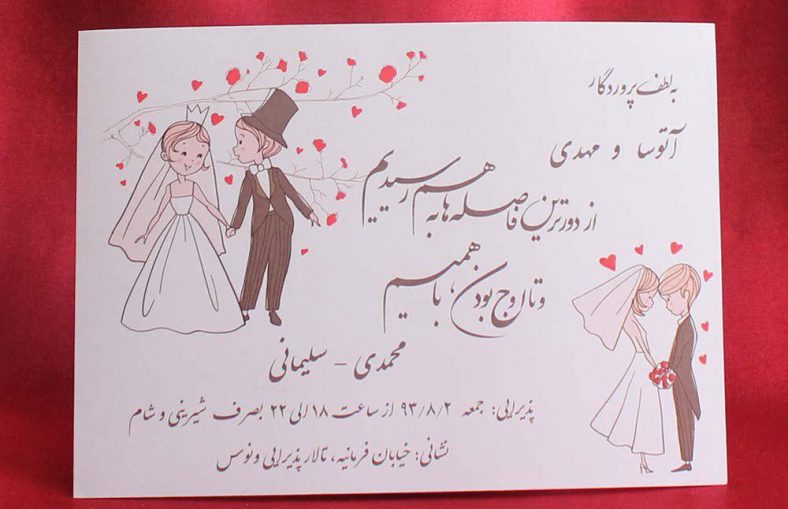 به لطف پروردگار
آتوسا و مهدی
از دورترین فاصله‌ها به هم رسیدیم
و تا اوج بودن، با همیم
محمدی - سلیمانی
پذیرایی: جمعه ۹۳/۸/۲ از ساعت ۱۸ الی ۲۲ بصرف شیرینی و شام
نشانی: خیابان فرمانیه، تالار پذیرایی ونوس